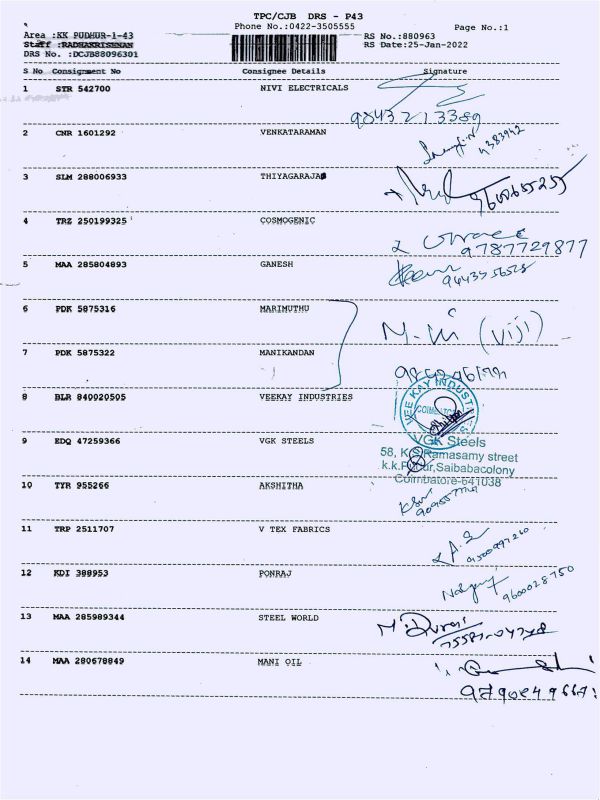 TPC/CJB DRS - P43
Phone No.:0422-3505555
Page No.:1
Area :KK PUDHUR-1-43
RS No.:880963
Staff :RADHAKRISHNAN
RS Date:25-Jan-2022
DRS No. :DCJB88096301
S No Consignment No Consignee Details Signature
1 STR 542700 NIVI ELECTRICALS
9843213389
2 CNR 1601292 VENKATARAMAN
3 SLM 288006933 THIYAGARAJAN
4 TRZ 250199325 COSMOGENIC
9787729877
5 MAA 285804893 GANESH
6 PDK 5875316 MARIMUTHU
(Viji)
7 PDK 5875322 MANIKANDAN
8 BLR 840020505 VEEKAY INDUSTRIES
VEE KAY INDUST
9 EDQ 47259366 VGK STEELS
VGK Steels
58, K.S.Ramasamy street
k.k.Pudur,Saibabacolony
Coimbatore-641038
10 TYR 955266 AKSHITHA
11 TRP 2511707 V TEX FABRICS
12 KDI 388953 PONRAJ
9600028750
13 MAA 285989344 STEEL WORLD
14 MAA 280678849 MANI OIL